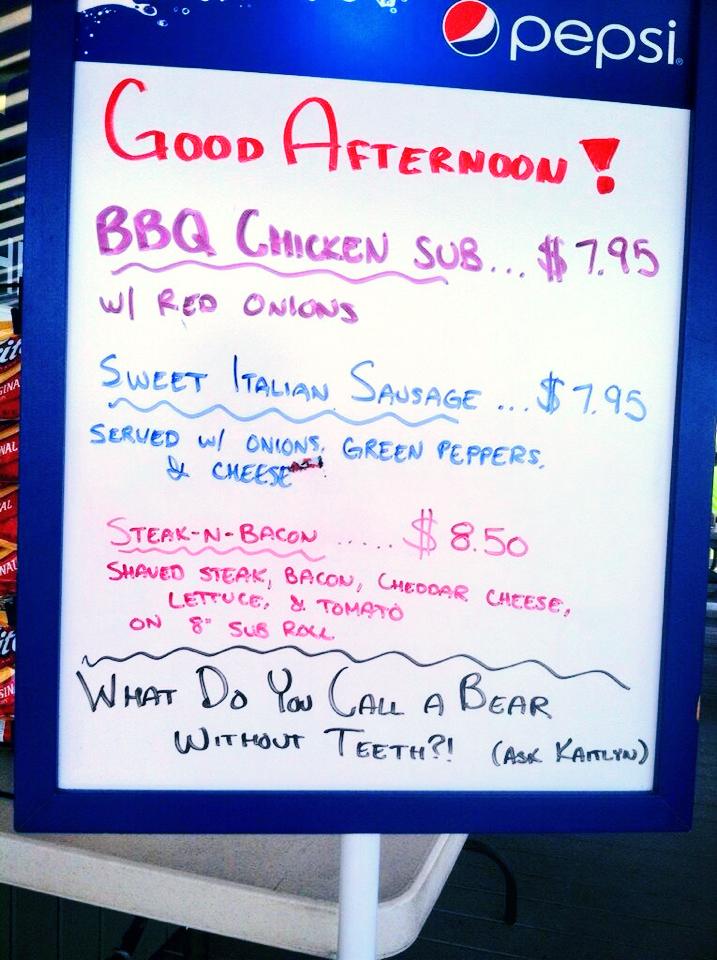 pepsi
GOOD AFTERNOON!
BBQ CHICKEN SUB... $7.95
W/ RED ONIONS
SWEET ITALIAN SAUSAGE ... $7.95
SERVED W/ ONIONS, GREEN PEPPERS,
& CHEESE
STEAK-N-BACON ..... $8.50
SHAVED STEAK, BACON, CHEDDAR CHEESE,
LETTUCE, & TOMATO
ON 8" SUB ROLL
WHAT DO YOU CALL A BEAR
WITHOUT TEETH?! (ASK KAITLYN)